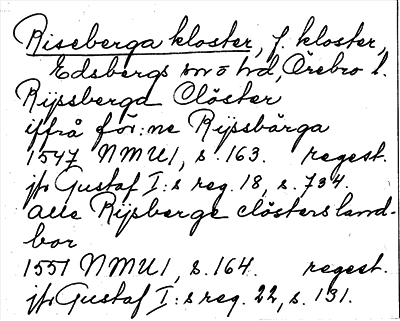 Riseberga kloster, f. kloster,
Edsbergs sn o hd, Örebro l.
Rijssberga Clöster
iffrå för:ne Rijssbärga
1547 NMU1, s. 163. regest.
jfr Gustaf I:s reg. 18, s. 734.
alle Rijsberge clösters land-
bor
1551 NMU1, s. 164. regest.
jfr Gustaf I:s reg. 22, s. 131.